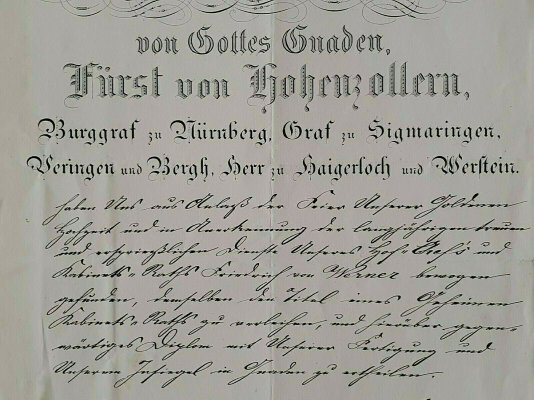 von Gottes Gnaden,
Fürst von Hohenzollern,
Burggraf zu Nürnberg, Graf zu Sigmaringen,
Veringen und Bergh, Herr zu Haigerloch und Werstein.
haben Uns aus Anlaß der Feier Unserer Goldenen
Hochzeit und in Anerkennung der langjährigen treuen
und ersprießlichen Dienste Unseres Hof-Raths und
Kabinets-Raths Friedrich von Werner bewogen
gefunden, demselben den Titel eines Geheimen
Kabinets-Raths zu verleihen, und hierüber gegen-
wärtiges Diplom mit Unserer Fertigung und
Unserem Insiegel in Gnaden zu ertheilen.